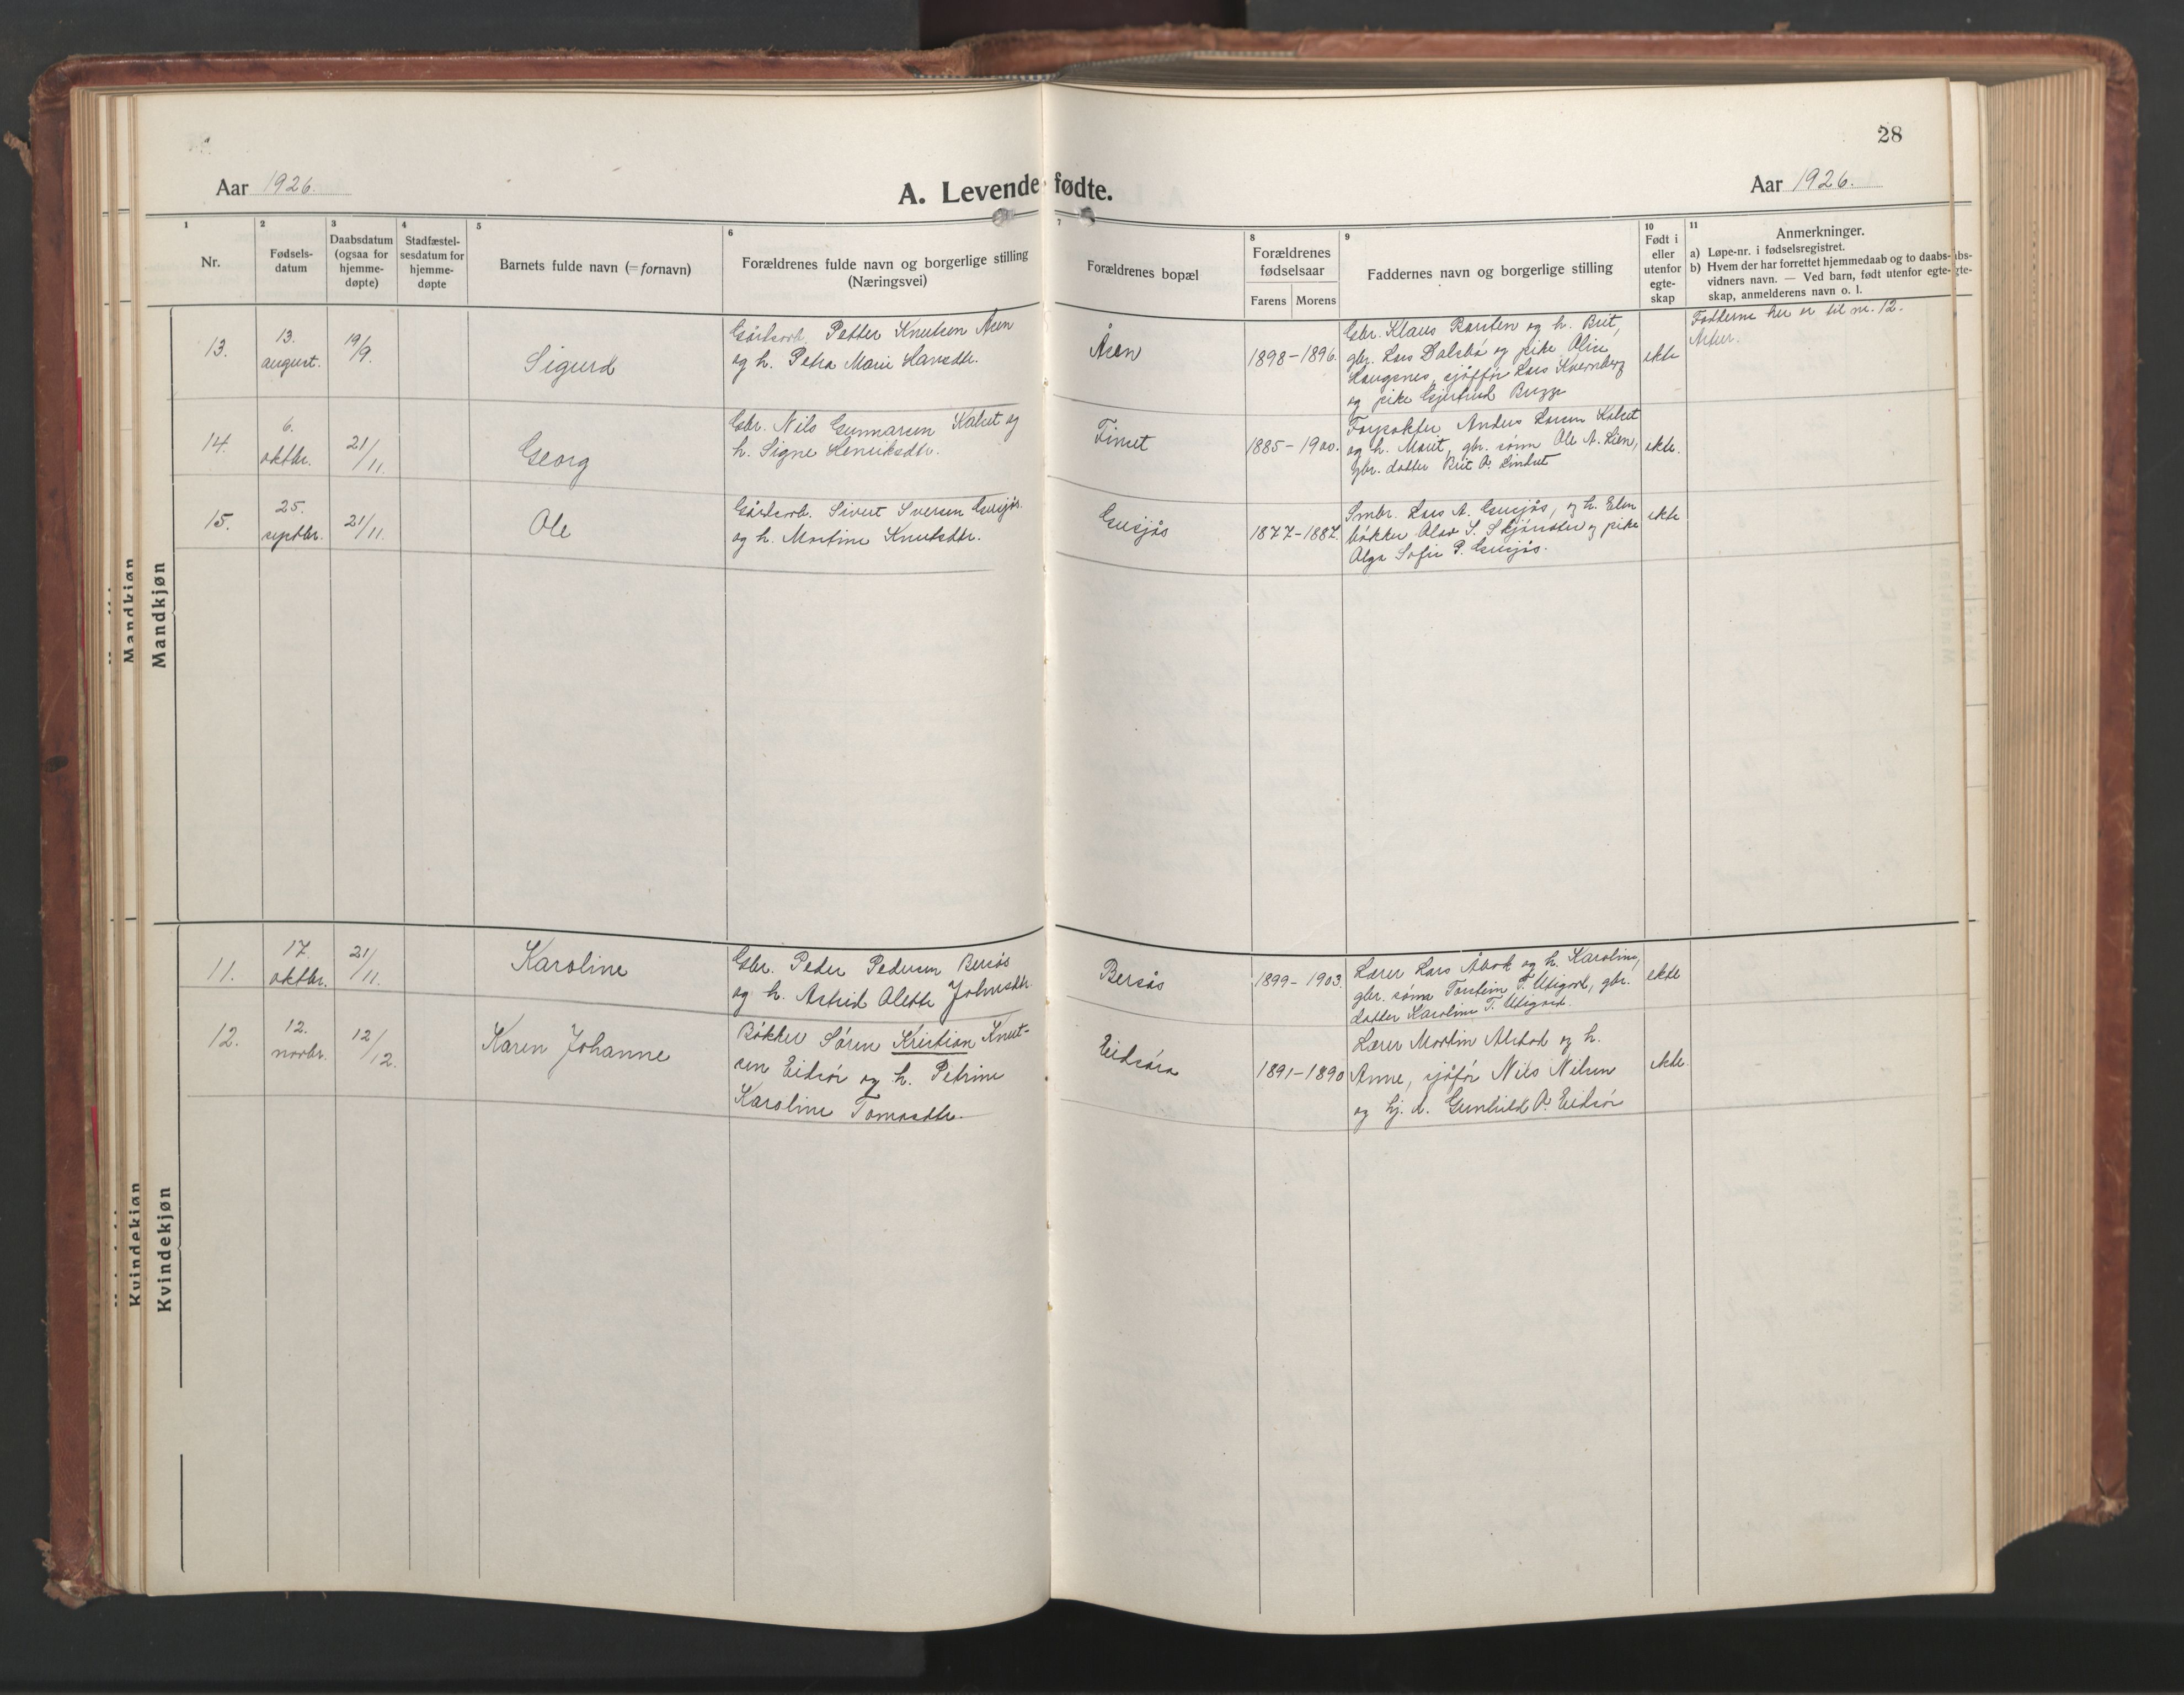 28
Aar 1926.
A. Levende fødte.
Aar 1926.
1
Nr.
2
Fødsels-
datum
3
Daabsdatum
(ogsaa for
hjemme-
døpte)
4
Stadfæstel-
sesdatum for
hjemme-
døpte
5
Barnets fulde navn (= fornavn)
6
Forældrenes fulde navn og borgerlige stilling
(Næringsvei)
7
Forældrenes bopæl
8
Forældrenes
fødselsaar
Farens Morens
9
Faddernes navn og borgerlige stilling
10
Født i
eller
utenfor
egte-
skap
11
Anmerkninger.
a) Løpe-nr. i fødselsregistret.
b) Hvem der har forrettet hjemmedaab og to daabs-
vidners navn. — Ved barn, født utenfor egte-
skap, anmelderens navn o. l.
Mandkjøn
13.
13.
august.
19/9.
Sigurd
Gårdsarb. Petter Knutsen Åsen
og h. Petra Marie Hansdtr.
Åsen
1898-1896.
Gbr. Klaus Barsten og h. Brit,
gbr. Lars Dalsbø og pike Alise
Haugsnes, sjåffør Lars Kvernberg
og pike Gjertrud Bugge
ekte
Fadderne her er til nr. 12.
14.
6.
oktbr.
21/11.
Georg
Gbr. Nils Gunnarsen Kalset og
h. Signe Henriksdtr.
Timset
1885-1900.
Forpakter Anders Larsen Kalset
og h. Marit, gbr. sønn Ole A. Lien,
gbr. datter Brit A. Lindset
ekte.
15.
25.
septbr.
21/11.
Ole
Gårdsarb. Sivert Iversen Gusjås
og h. Martine Knutsdtr.
Gusjås
1877-1887.
Smbr. Lars A. Gusjås, og h. Elen
bøkker Olav S. Skjørsæter og pike
Alga Sofie P. Gusjås.
ekte
Kvindekjøn
11.
17.
oktbr.
21/11.
Karoline
Gbr. Peder Pedersen Bersås
og h. Astrid Alette Johnsdtr.
Bersås
1899-1903.
Lærer Lars Åbak og h. Karoline,
gbr. sønn Torstein T. Utigard, gbr.
datter Karoline T. Utigard.
ekte
12.
12.
novbr.
12/12.
Karen Johanne
Bøkker Søren Kristian Knut-
sen Eidsør og h. Petrine
Karoline Tomasdtr.
Eidsøra
1891-1890
Lærer Martin Alstad og h.
Anne, sjåfør Nils Nilsen
og hj. d. Gunhild A. Eidsør
ekte.
Mandkjøn
Kvindekjøn